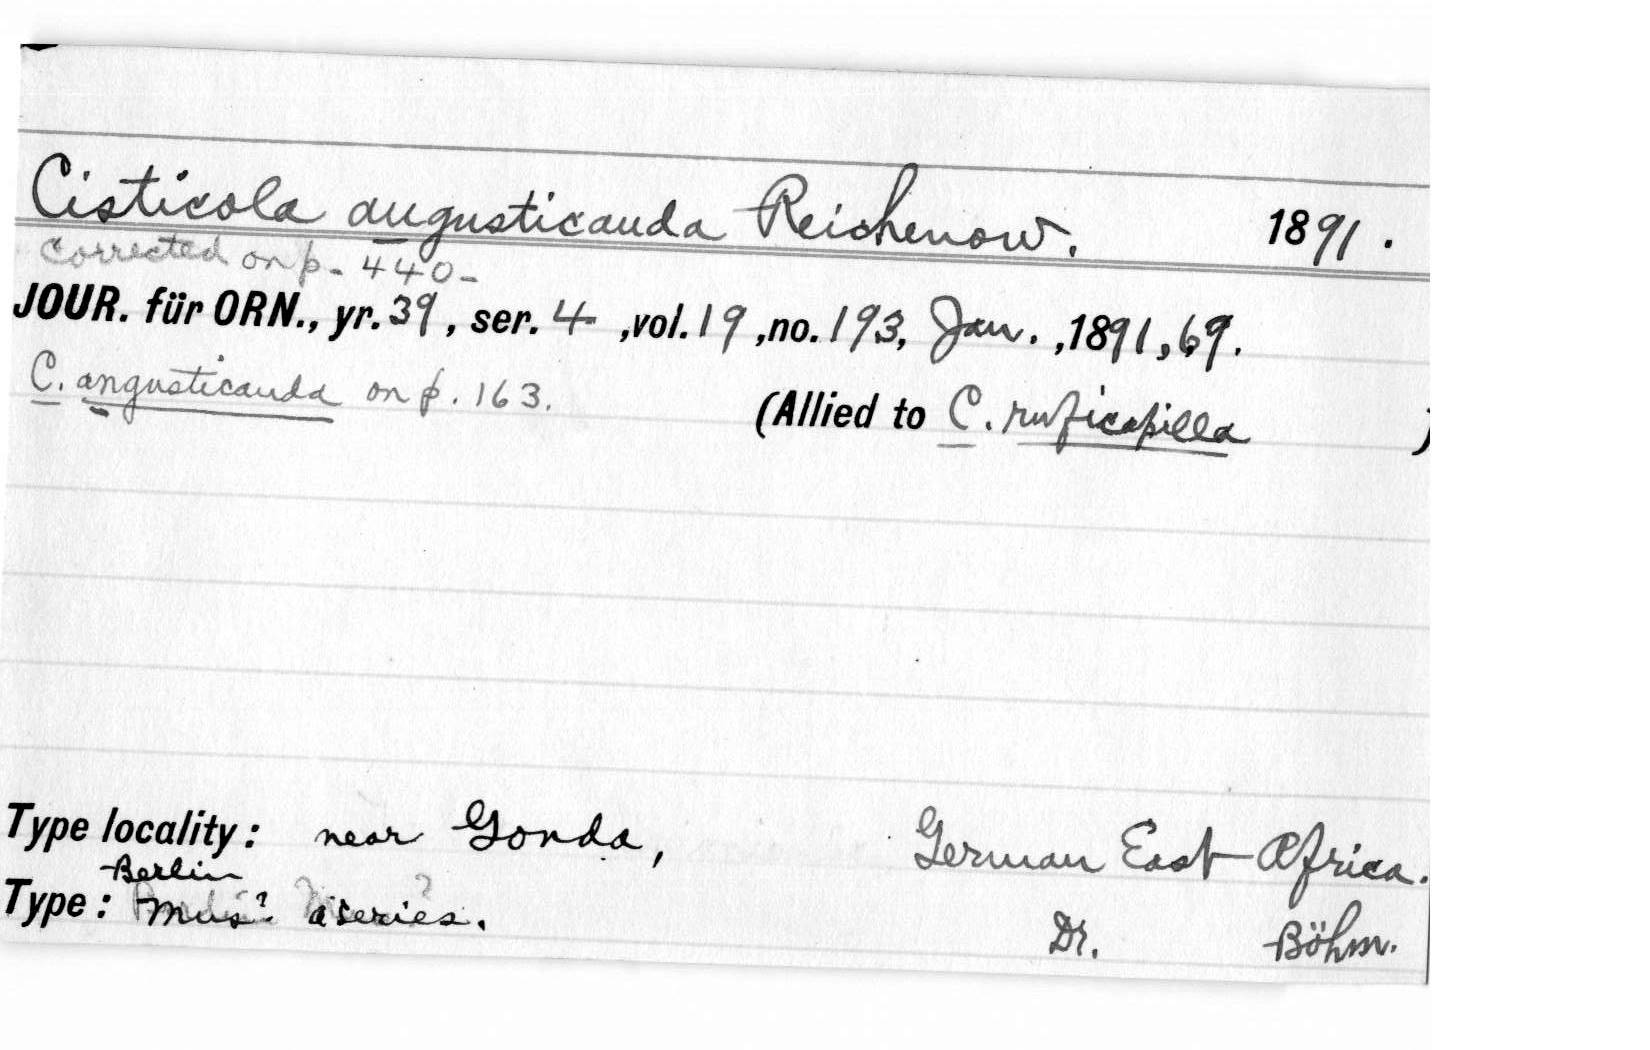 Cisticola augusticauda Reichenow. 1891.
Corrected on p. 440-
JOUR. für ORN., yr. 39, ser. 4, vol. 19, no. 193, Jan., 1891, 69.
C. angusticauda on p. 163.
(Allied to C. ruficapilla )
Type locality: near Gonda, German East Africa.
Berlin
Type: Mus? a series. Dr. Böhm.